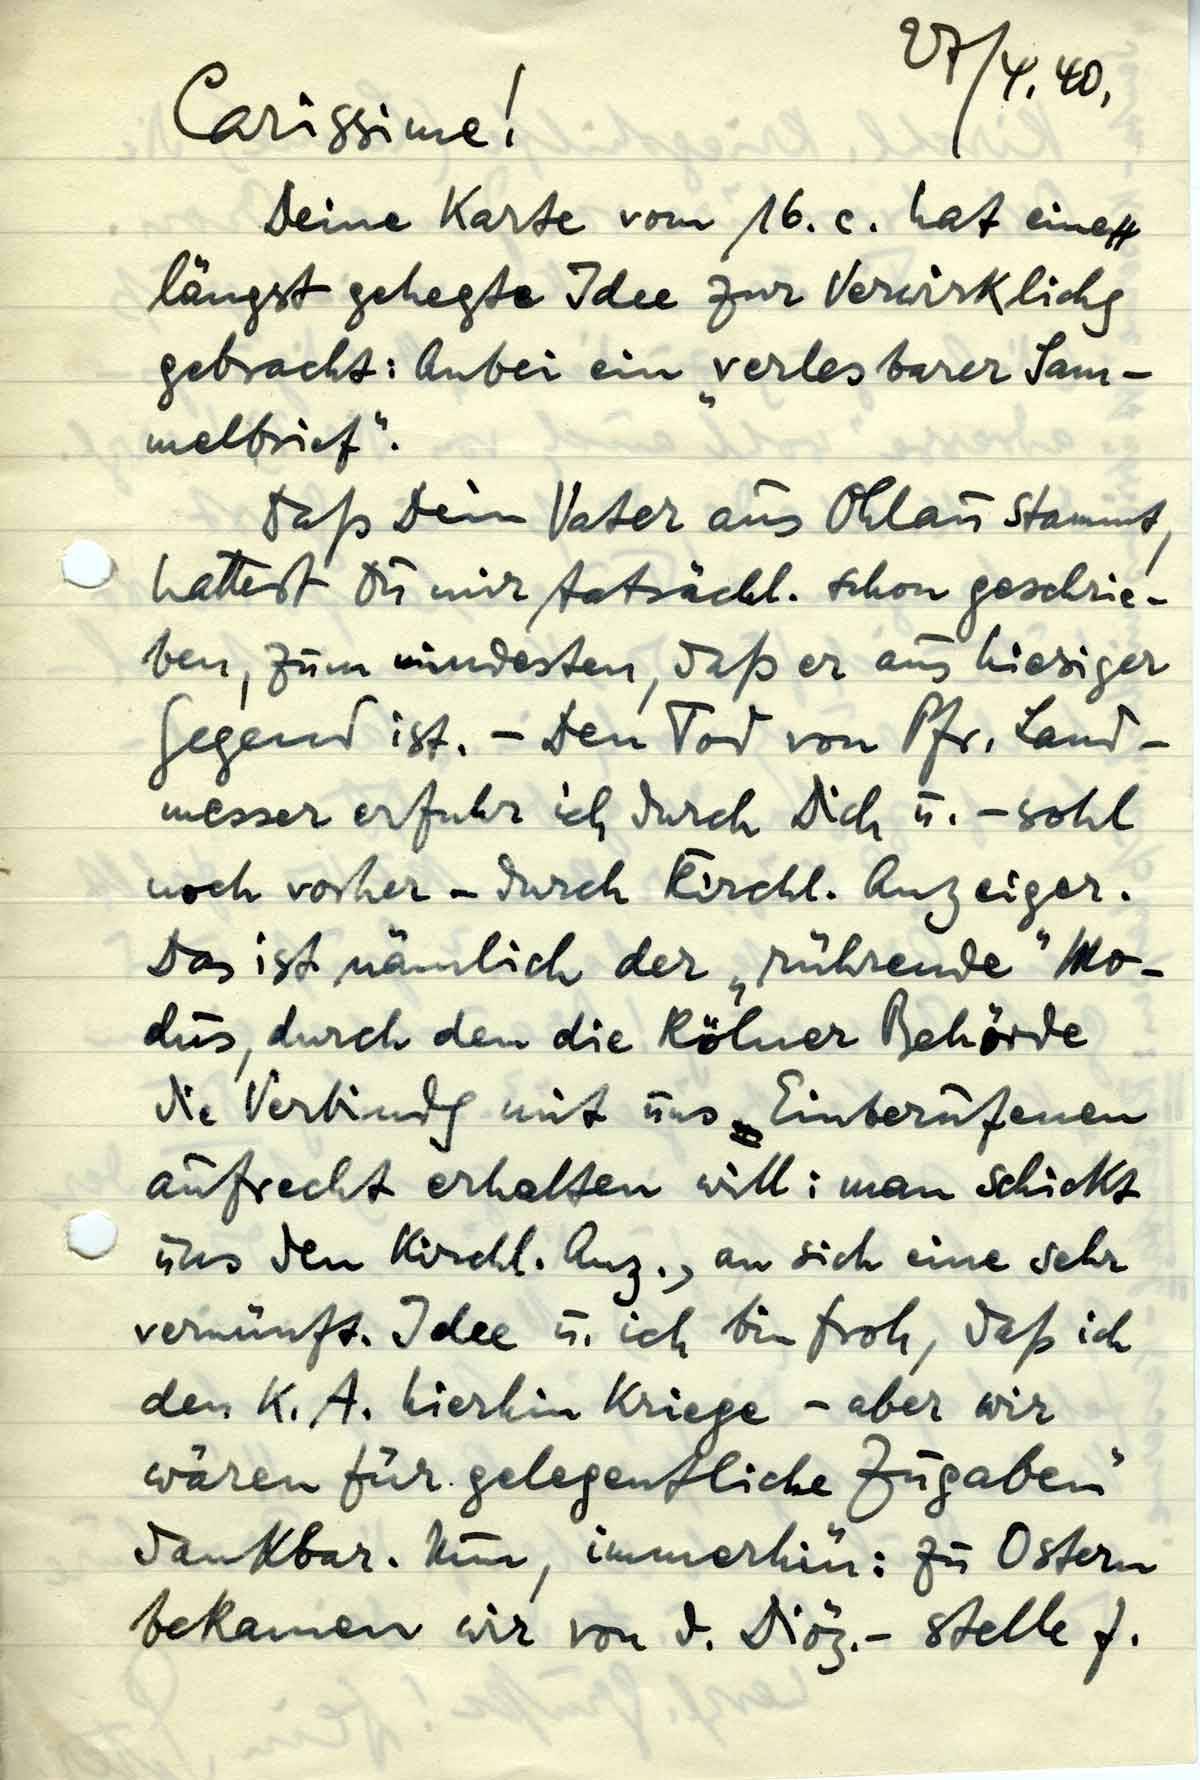 27/4. 40.
Carissime!
Deine Karte vom 16. c. hat eine
längst gehegte Idee zur Verwirklichg
gebracht: Anbei ein „verlesbarer Sam-
melbrief".
Daß Dein Vater aus Ohlau stammt,
hattest Du mir tatsächl. schon geschrie-
ben, zum mindesten, daß er aus hiesiger
Gegend ist. – Den Tod von Pfr. Land-
messer erfuhr ich durch Dich u. – wohl
noch vorher – durch Kirchl. Anzeiger.
Das ist nämlich der „rührende" Mo-
dus, durch den die Kölner Behörde
die Verbindg mit uns Einberufenen
aufrecht erhalten will: man schickt
uns den Kirchl. Anz., an sich eine sehr
vernünft. Idee u. ich bin froh, daß ich
den K. A. hierhin kriege – aber wir
wären für gelegentliche Zugaben"
dankbar. Nun, immerhin: zu Ostern
bekamen wir von d. Diöz.- stelle f.